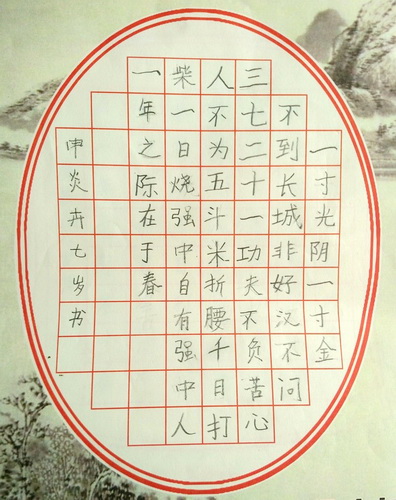 一寸光阴一寸金
不到长城非好汉不问
三七二十一功夫不负苦心
人不为五斗米折腰千日打
柴一日烧强中自有强中人
一年之际在于春
申炎卉七岁书